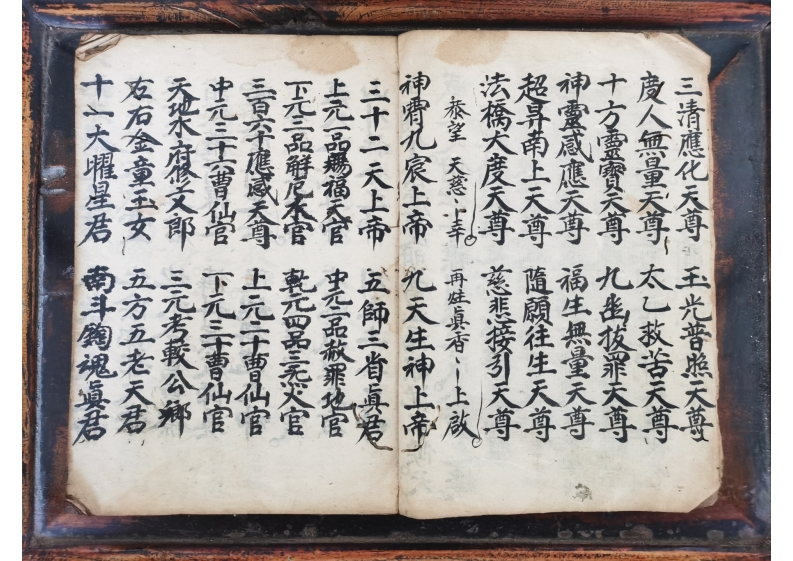 三清應化天尊 玉光普照天尊
度人無量天尊 太乙救苦天尊
十方靈寶天尊 九幽拔罪天尊
神靈感應天尊 福生無量天尊
超昇南上天尊 隨願往生天尊
法橋大度天尊 慈悲接引天尊
恭望 天慈 上幸 再炷真香 上啟
神霄九宸上帝 九天生神上帝
三十二天上帝 五師三省真君
上元一品賜福天官 中元二品赦罪地官
下元三品解厄水官 乾元四品三炁火官
三百六十應感天尊 上元二十曹仙官
中元三十二曹仙官 下元三十曹仙官
天地水府修文郎 三元考較公卿
左右金童玉女 五方五老天君
十一大曜星君 南斗 魂真君